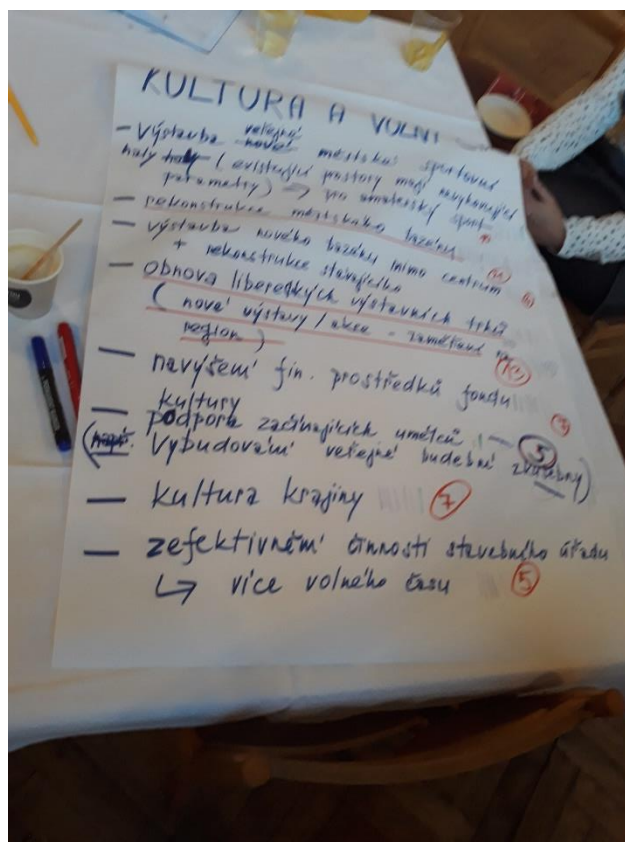 KULTURA A VOLN
veřejné
– Výstavba nové městské sportovní
haly haly (existující prostory mají nevyhovující
parametry) → pro amatérský sport
– rekonstrukce městského bazénu
– výstavba nového bazénu mimo centrum
+ rekonstrukce stávajícího
– obnova libereckých výstavních trhů
(nové výstavy/akce - zaměření na
region)
– navýšení fin. prostředků fondu
kultury
– podpora začínajících umělců 5
(např. Vybudování veřejné hudební zkušebny)
– kultura krajiny 7
– zefektivnění činností stavebního úřadu
↳ více volného času 5